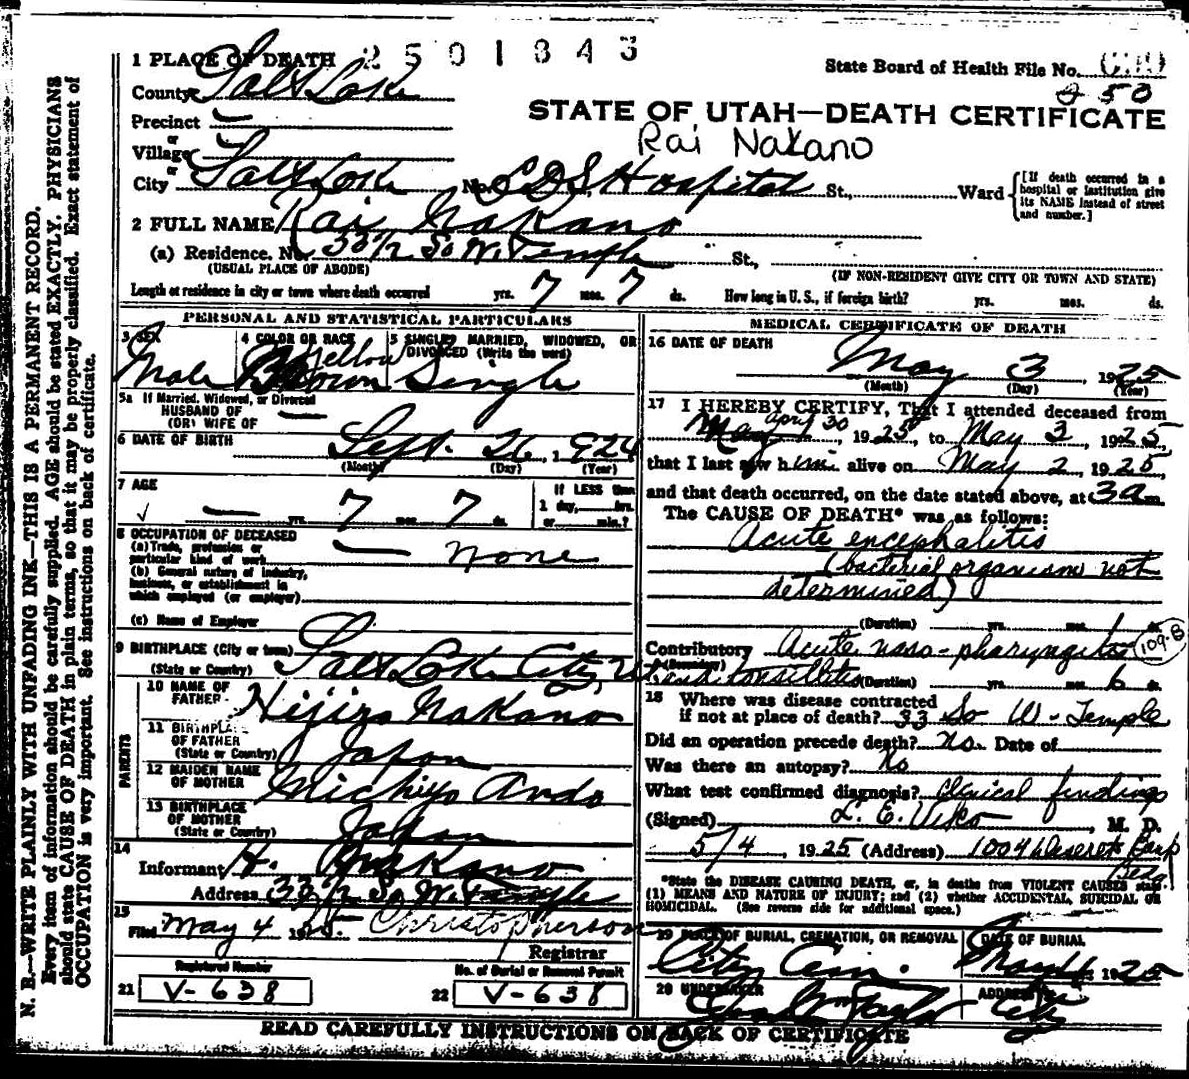 2501843
1 PLACE OF DEATH
State Board of Health File No.
County Salt Lake
850
STATE OF UTAH—DEATH CERTIFICATE
Precinct —
Rai Nakano
or
Village —
or
City Salt Lake No. LDS Hospital St., Ward
[If death occurred in a hospital or institution give its NAME instead of street and number.]
2 FULL NAME Rai Nakano
(a) Residence. No. 33 1/2 So W. Temple St.,
(USUAL PLACE OF ABODE) (IF NON-RESIDENT GIVE CITY OR TOWN AND STATE)
Length of residence in city or town where death occurred yrs. 7 mos. 7 ds. How long in U. S., if foreign birth? yrs. mos. ds.
PERSONAL AND STATISTICAL PARTICULARS
3 SEX
Male
4 COLOR OR RACE
Yellow
Brown
5 SINGLE, MARRIED, WIDOWED, OR DIVORCED (Write the word)
Single
5a If Married, Widowed, or Divorced
HUSBAND OF
(OR) WIFE OF —
6 DATE OF BIRTH Sept. 26, 1924
(Month) (Day) (Year)
7 AGE
— yrs. 7 mos. 7 ds.
If LESS than
1 day, hrs.
or min.?
8 OCCUPATION OF DECEASED
(a) Trade, profession or
particular kind of work — none
(b) General nature of industry,
business, or establishment in
which employed (or employer)
(c) Name of Employer
9 BIRTHPLACE (City or town)
(State or Country) Salt Lake City, U
PARENTS
10 NAME OF
FATHER Hijiro Nakano
11 BIRTHPLACE
OF FATHER
(State or Country) Japan
12 MAIDEN NAME
OF MOTHER Michiyo Ando
13 BIRTHPLACE
OF MOTHER
(State or Country) Japan
14
Informant H. Nakano
Address 33 1/2 So W. Temple
15
Filed May 4 1925. Christopherson
Registrar
Registered Number
21 V-638
No. of Burial or Removal Permit
22 V-638
MEDICAL CERTIFICATE OF DEATH
16 DATE OF DEATH
May 3, 1925
(Month) (Day) (Year)
17 I HEREBY CERTIFY, That I attended deceased from
May April 30, 1925, to May 3, 1925,
that I last saw him alive on May 2, 1925,
and that death occurred, on the date stated above, at 3 a m.
The CAUSE OF DEATH* was as follows:
Acute encephalitis
(bacterial organism not
determined)
(Duration) yrs. mos. 1
Contributory Acute naso-pharyngitis 109-B
(Secondary)
and tonsillitis (Duration) yrs. mos. 6 ds.
18 Where was disease contracted
if not at place of death? 33 So W-Temple
Did an operation precede death? No. Date of
Was there an autopsy? No
What test confirmed diagnosis? Clinical findings
(Signed) L. E. Viko, M. D.
5/4, 1925 (Address) 1004 Deseret Bank
Bldg
*State the DISEASE CAUSING DEATH, or, in deaths from VIOLENT CAUSES state
(1) MEANS AND NATURE OF INJURY; and (2) whether ACCIDENTAL, SUICIDAL OR
HOMICIDAL. (See reverse side for additional space.)
19 PLACE OF BURIAL, CREMATION, OR REMOVAL
City Cem.
DATE OF BURIAL
1925
20 UNDERTAKER
ADDRESS
City
READ CAREFULLY INSTRUCTIONS ON BACK OF CERTIFICATE
N. B.—WRITE PLAINLY WITH UNFADING INK—THIS IS A PERMANENT RECORD.
Every item of information should be carefully supplied. AGE should be stated EXACTLY. PHYSICIANS
should state CAUSE OF DEATH in plain terms, so that it may be properly classified. Exact statement of
OCCUPATION is very important. See instructions on back of certificate.